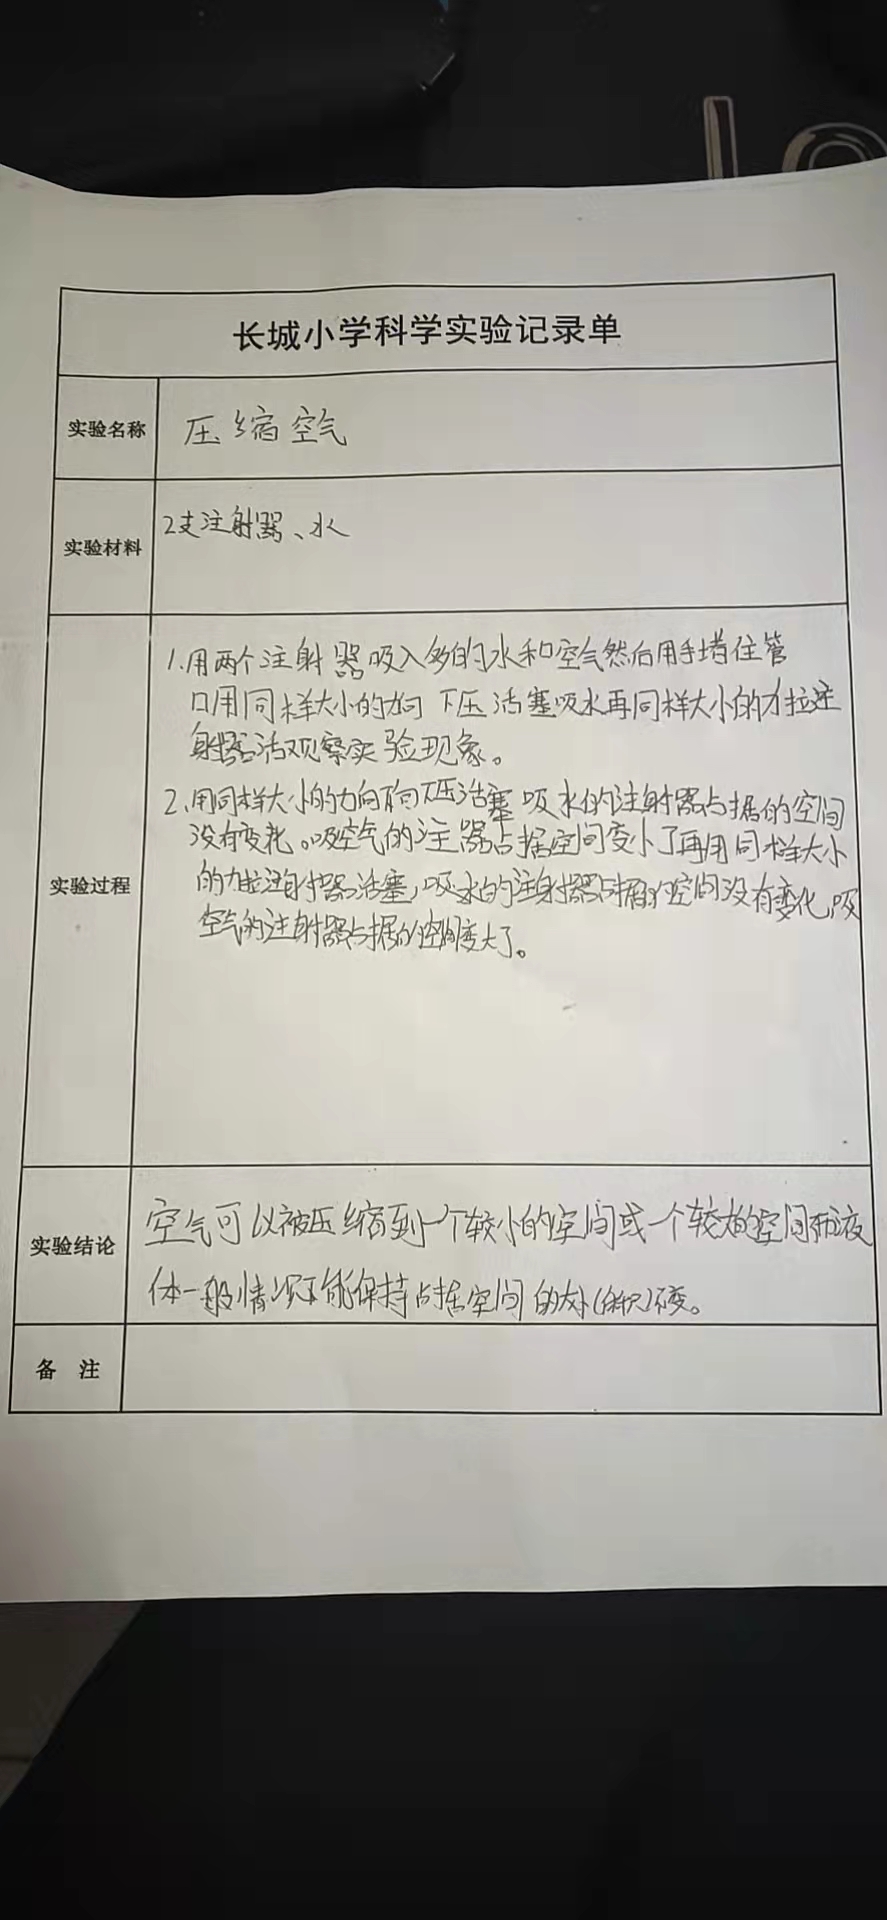 长城小学科学实验记录单
实验名称
压缩空气
实验材料
2支注射器、水
实验过程
1.用两个注射器吸入多的水和空气然后用手堵住管
口用同样大小的力向下压活塞吸水再同样大小的力拉注
射器活观察实验现象。
2.用同样大小的力向下压活塞吸水的注射器占据的空间
没有变化。吸空气的注器占据空间变小了再用同样大小
的力拉注射器活塞,吸水的注射器占据的空间没有变化,吸
空气的注射器占据的空间变大了。
实验结论
空气可以被压缩到一个较小的空间或一个较大的空间而液
体一般情况下能保持占据空间的大小(体积)不变。
备 注